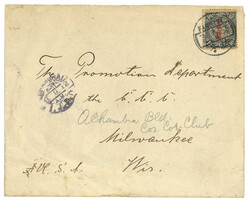 The Promotion Department
the C. C. C.
Alhambra Bld.
Cos. Cos. Club
Milwaukee
U. S. A.
Wis.